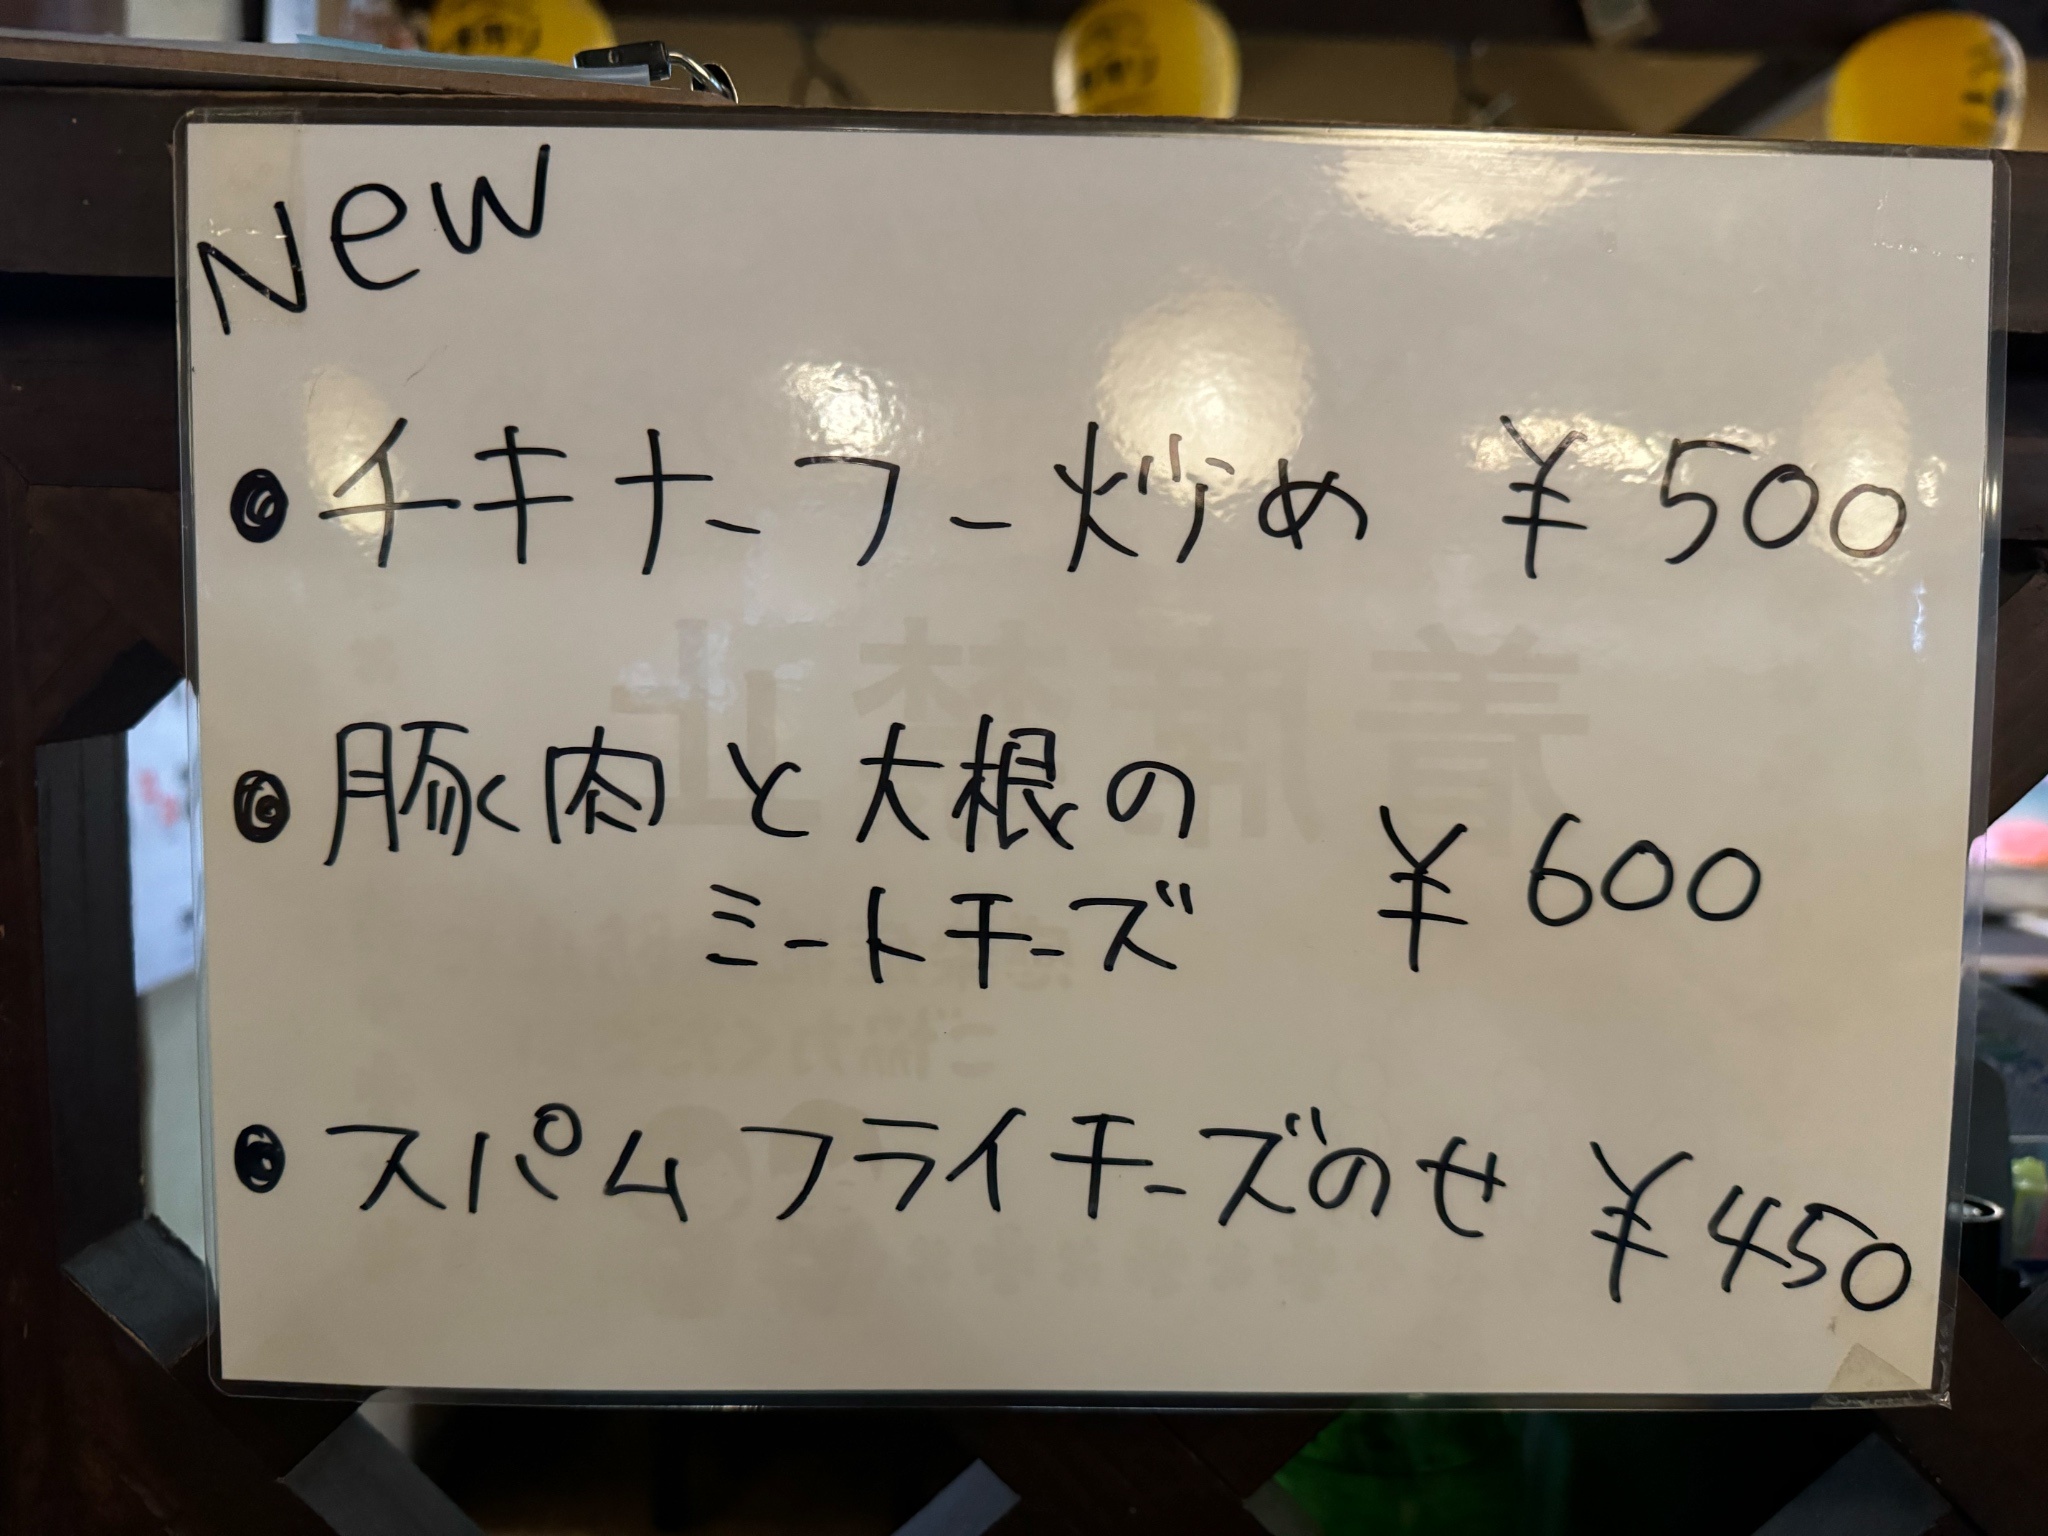 New
● チキナーフー炒め ¥500
● 豚肉と大根の
ミートチーズ ¥600
● スパムフライチーズのせ ¥450
着席禁止
ご協力くだ